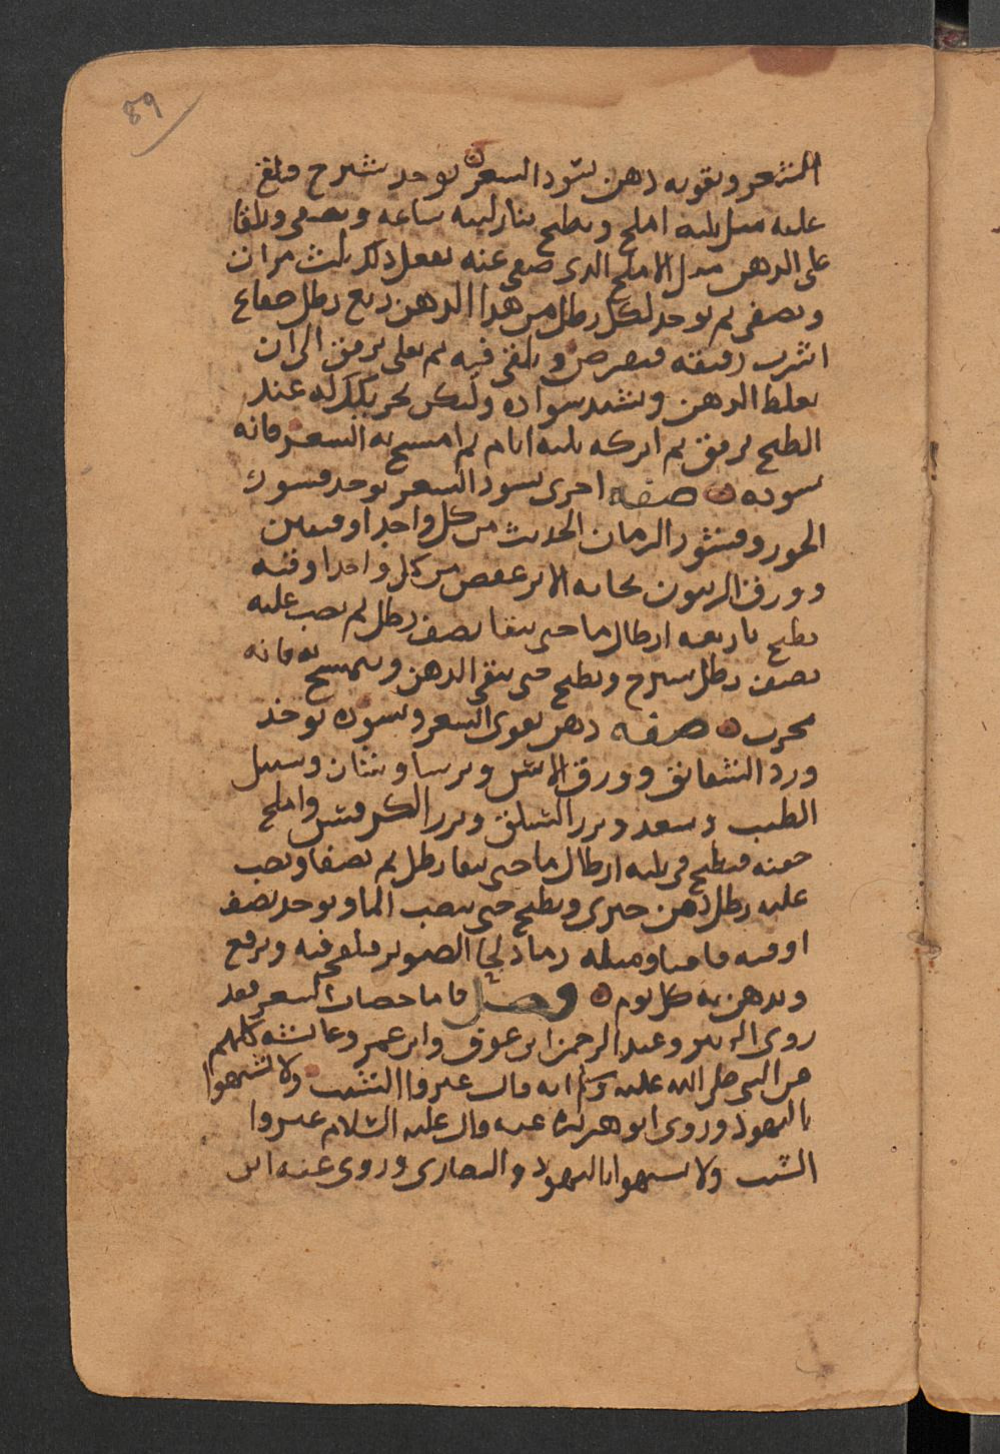 89
الشعر ويقويه دهن يسود الشعر يوخد شيرح فيلقى
عليه مثل ثلثه املج ويطبخ بنار لينه ساعه ويصفى ويلقا
على الدهن مثل الاملج الدى صفى عنه يفعل ذلك ثلث مرات
ويصفى ثم يوخد لكل رطل من هدا الدهن ربع رطل
اشرب دقيقه فيقرص ويلقى فيه ثم يغلى برفق الى ان
يغلط الدهن ويشتد سواده وليكن تحريكك له عند
الطبخ برفق ثم اتركه ثلثه ايام ثم امسح به الشعر فانه
يسوده صفه اخرى يسود الشعر يوخد قشور
الجوز وقشور الرمان الحديث من كل واحد اوقيتين
وورق الزيتون عفص من كل واحد اوقيه
يطبخ باربعه ارطال ما حتى يبقا نصف رطل ثم يصب عليه
نصف رطل شيرح ويطبخ حتى يبقى الدهن ويمسح به فانه
مجرب صفه دهن يقوى الشعر ويسوده يوخد
ورد الشقايق وورق الاس وبرساوشان وسنبل
الطيب وسعد وبزر السلق وبزر الكرفس واملج
حفنه فيطبخ فى ثلثه ارطال ما حتى يبقا رطل ثم يصفا ويصب
عليه رطل دهن خيرى ويطبخ حتى ينضب الما ويوخد نصف
اوقيه قاقيا ومثله رماد لحا الصنوبر فيلقى فيه ويرفع
ويدهن به كل يوم فصل فاما خضاب الشعر فقد
روى الزبير وعبد الرحمن ابن عوف وابن عمر وعايشه كلهم
عن النبى صلى الله عليه وسلم انه قال غيروا الشيب ولا تشبهوا
باليهود وروى ابو هريره عنه قال عليه السلام غيروا
الشيب ولا تشبهوا باليهود والنصارى وروى عنه ابن